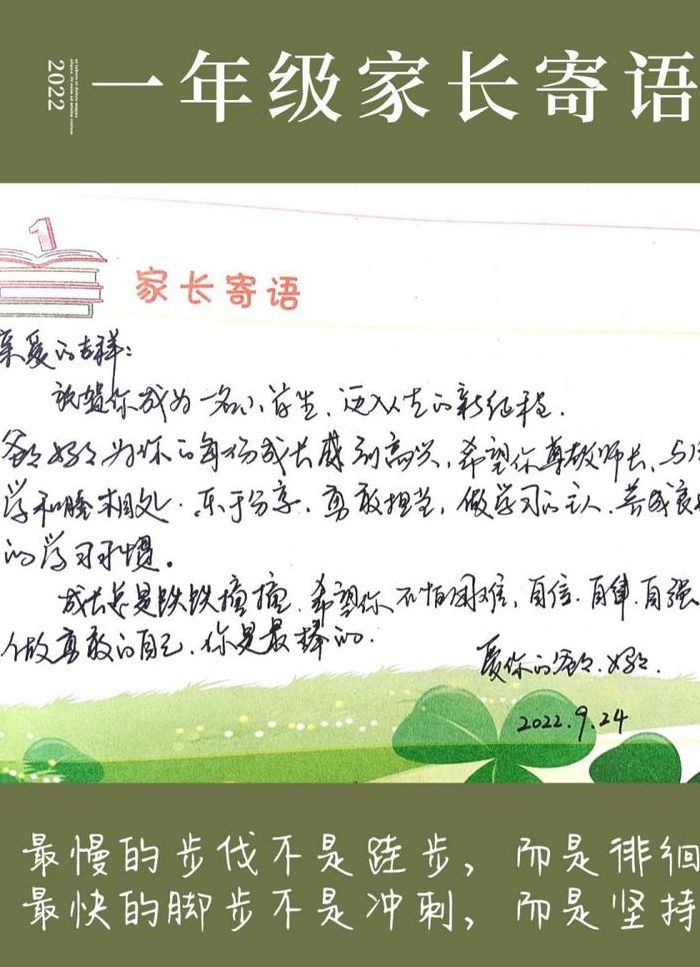 2022
一年级家长寄语
1
家长寄语
亲爱的吉祥：
祝贺你成为一名小学生，迈入人生的新征程．
爸爸妈妈为你的每份成长感到高兴，希望你尊敬师长、与
学和睦相处．乐于分享，勇敢担当，做学习的主人，养成良
的学习习惯。
成长总是跌跌撞撞．希望你不怕困难，自信．自律．自强
做勇敢的自己，你是最棒的．
爱你的爸爸．妈妈．
2022.9.24
最慢的步伐不是跬步，而是徘徊
最快的脚步不是冲刺，而是坚持